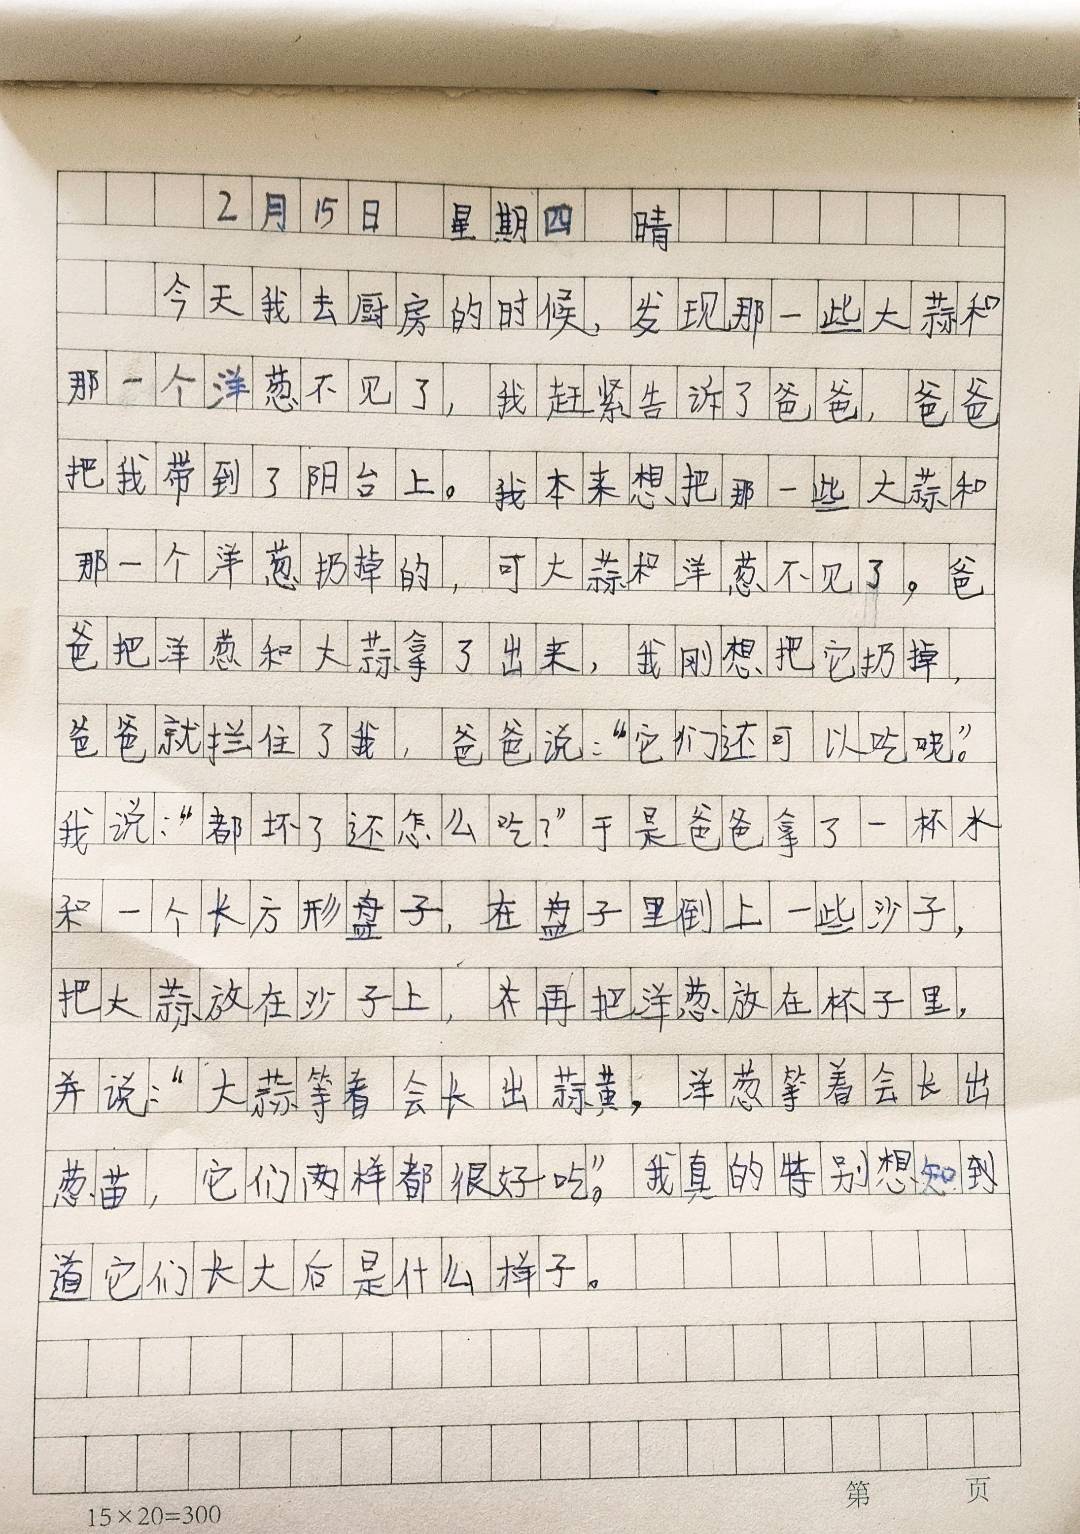 2月15日 星期四 晴
今天我去厨房的时候，发现那一些大蒜和
那一个洋葱不见了，我赶紧告诉了爸爸，爸爸
把我带到了阳台上。我本来想把那一些大蒜和
那一个洋葱扔掉的，可大蒜和洋葱不见了。爸
爸把洋葱和大蒜拿了出来，我刚想把它扔掉，
爸爸就拦住了我，爸爸说：“它们还可以吃呢”。
我说：“都坏了还怎么吃？”于是爸爸拿了一杯水
和一个长方形盘子，在盘子里倒上一些沙子，
把大蒜放在沙子上，再把洋葱放在杯子里，
并说：“大蒜等着会长出蒜黄，洋葱等着会长出
葱苗，它们两样都很好吃”。我真的特别想知到
道它们长大后是什么样子。
15×20=300
第 页